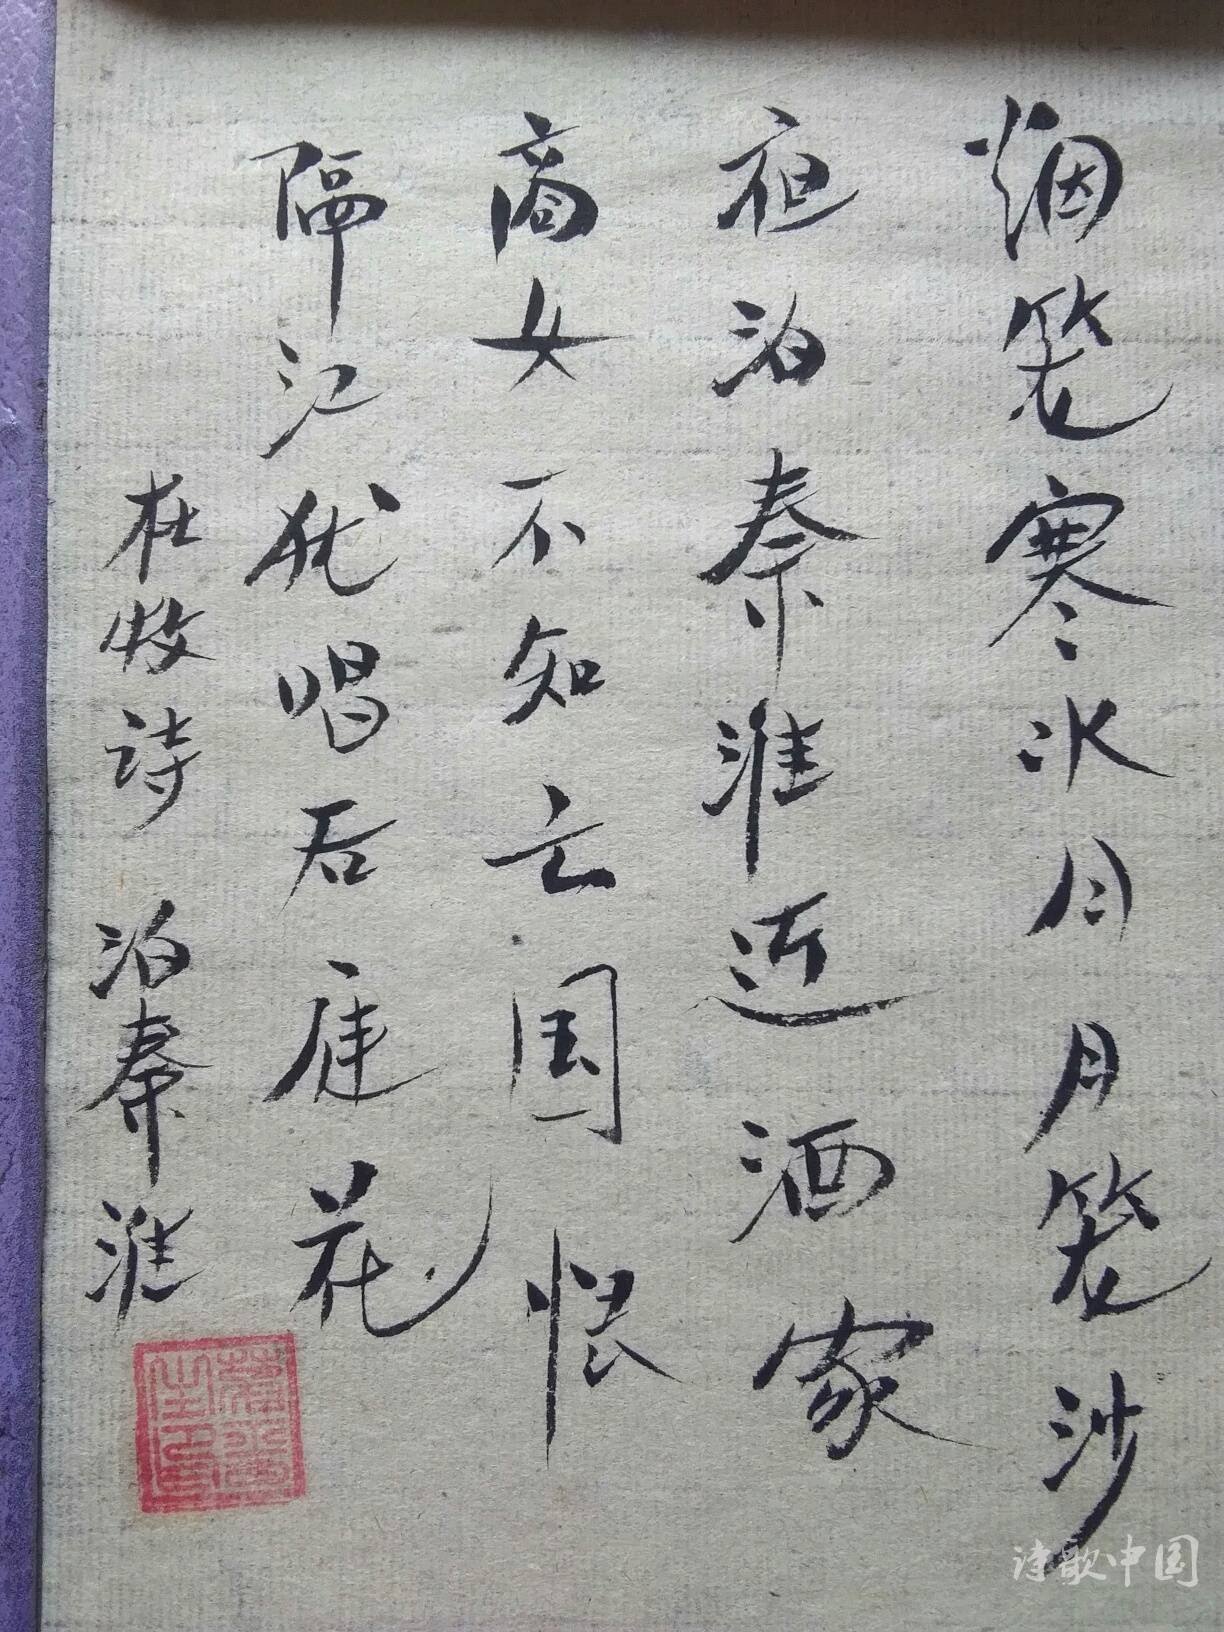 烟笼寒水月月笼沙
夜泊秦淮近酒家
商女不知亡国恨
隔江犹唱后庭花
杜牧诗 泊秦淮
诗歌中国